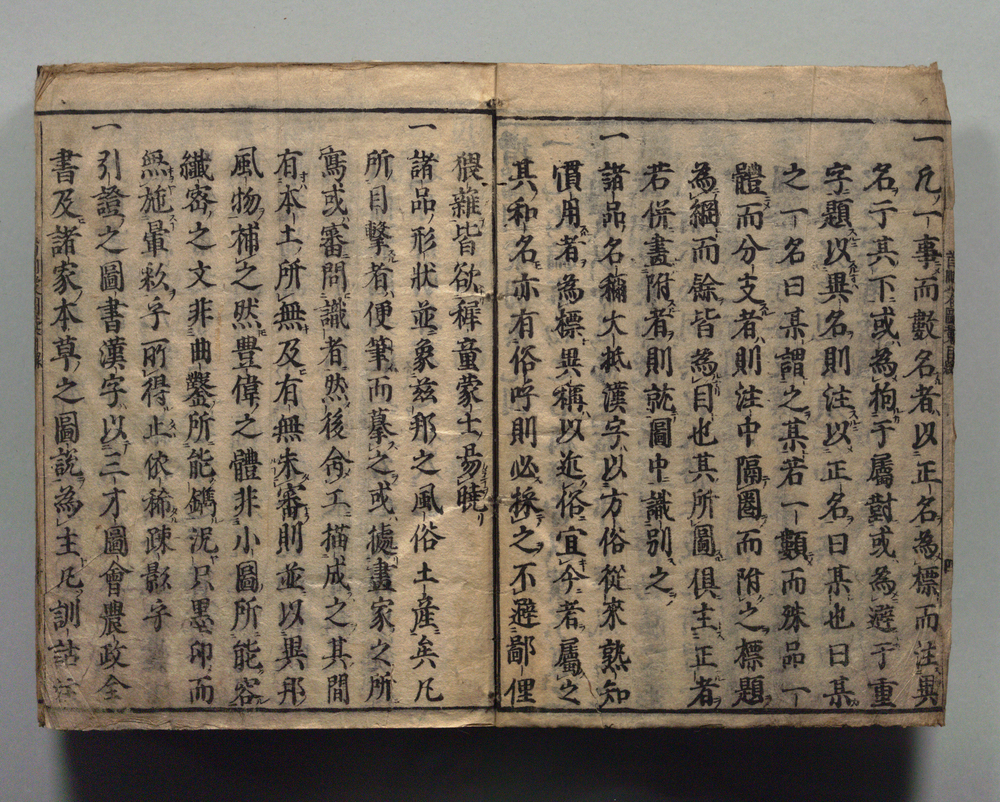 一凡一事而數名者以正名為標而注異
名于其下或為拘于屬對或為避于重
字題以異名則注以正名曰某也曰某
之一名曰某謂之某若一類而殊品一
體而分支者則注中隔圏而附之標題
為綱而餘皆為目也其所圖俱主正者
若併畫附者則就圖中識別之
一諸品名稱大抵漢字以方俗從來熟知
慣用者為標異稱以近俗宜今者屬之
其和名亦有俗呼則必採之不避鄙俚
猥雜皆欲穉童蒙士易暁
一諸品形狀並象茲邦之風俗土産矣凡
所目擊者便筆而摹之或據畫家之所
寫或審問識者然後命工描成之其間
有本土所無及有無未審則並以異邦
風物補之然豊偉之體非小圖所能容
纖密之文非曲鑿所能鐫泥只墨印而
無施暈彩乎所得止依稀疎影字
一引證之圖書漢字以三才圖會農政全
書及諸家本草之圖說為主凡訓詁